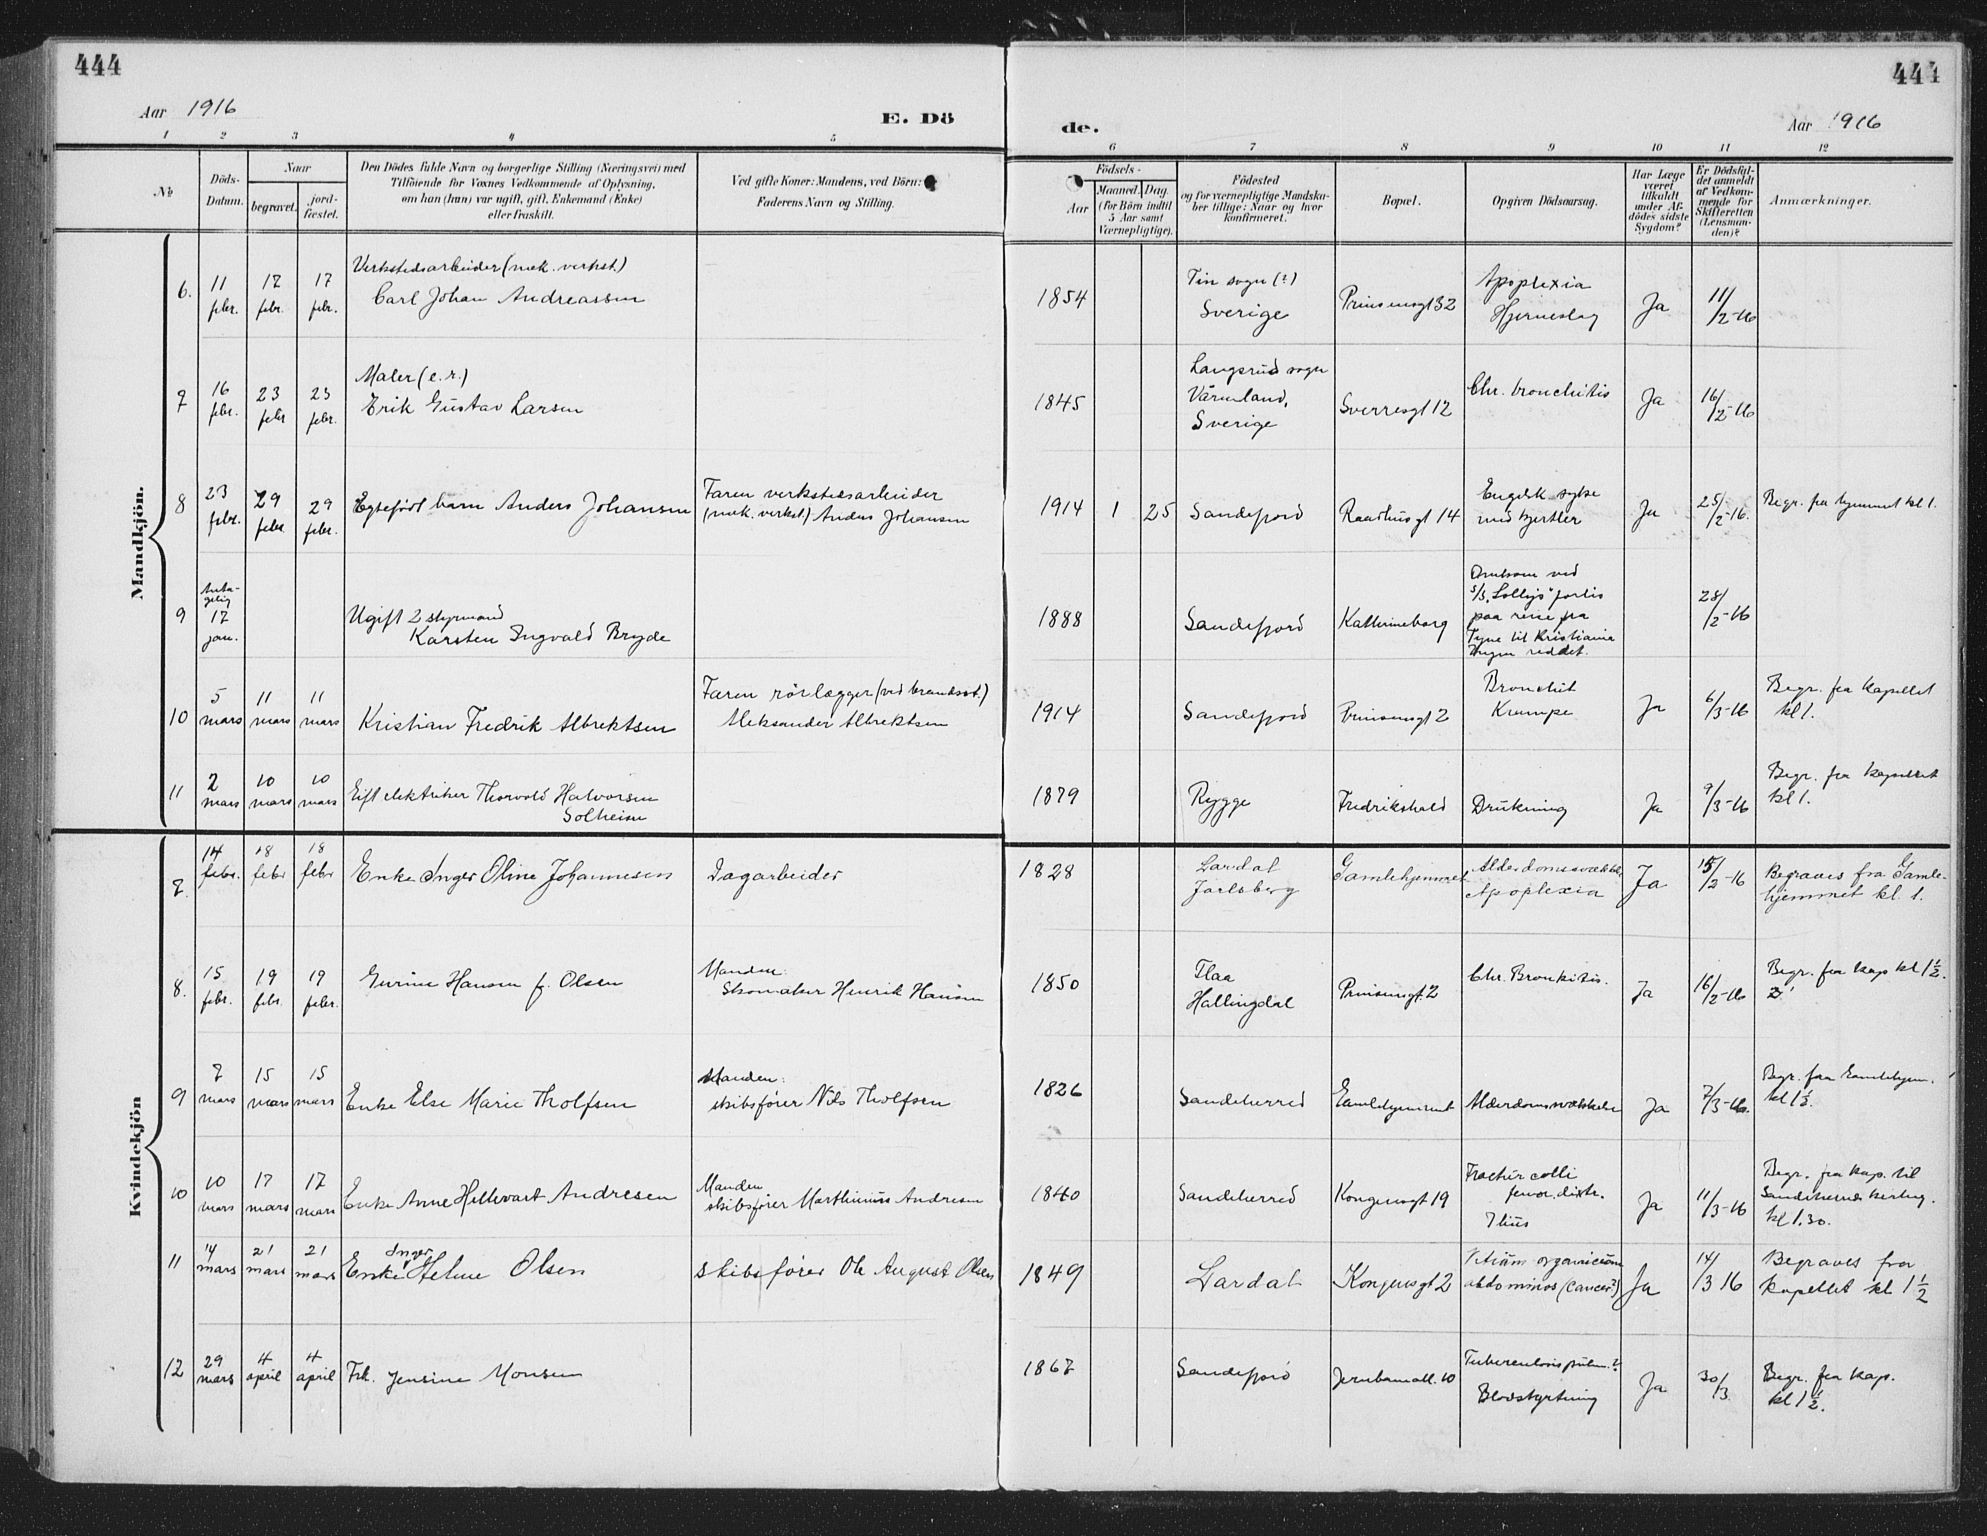 444
444
Aar 1916
E. Dö
de.
Aar 1916
1 2 3 4 5 6 7 8 9 10 11 12
No
Döds-
Datum.
Naar
begravet.
jord-
fæstet.
Den Dödes fulde Navn og borgerlige Stilling (Næringsvei) med
Tilföiende for Voxnes Vedkommende af Oplysning,
om han (hun) var ugift, gift, Enkemand (Enke)
eller fraskilt.
Ved gifte Koner: Mandens, ved Börn:
Faderens Navn og Stilling.
Födsels-
Aar
Maaned. Dag.
(for Börn indtil
5 Aar samt
Værnepligtige).
Födested
og for værnepligtige Mandska-
ber tillige: Naar og hvor
konfirmeret.
Bopæl.
Opgiven Dödsaarsag.
Har Læge
været
tilkaldt
under Af-
dödes sidste
Sygdom?
Er Dödsfal-
det anmeldt
af Vedkom-
mende for
Skifteretten
(Lensman-
den)?
Anmærkninger.
Mandkjön.
6. 11 febr. 17 febr. 17 febr.
Verkstedsarbeider (mek. verkst.)
Carl Johan Andreassen
1854
Tin sogn (?)
Sverige
Prinsensgt 32
Apoplexia
Hjerneslag
Ja
11/2-16
7 16 febr. 23 febr 23 febr.
Maler (e. r.)
Erik Gustav Larsen
1845
Langsrud sogn
Värmland,
Sverige
Sverresgt 12
Chr. bronchitis
Ja
16/2-16
8 23 febr. 29 febr 29 febr.
Egtefødt barn Anders Johansen
Faren verkstedsarbeider
(mek. verkst.) Anders Johansen
1914 1 25
Sandefjord
Raadhusgt 14
Engelsk syke
med kjertler
Ja
25/2-16.
Begr. fra hjemmet kl 1.
9
Anta-
gelig
17
jan.
Ugift 2 styrmand
Karsten Ingvald Bryde
1888
Sandefjord
Kathrineborg
Omkom ved
s/s "Sollys" forlis
paa reise fra
Tyne til Kristiania
Ingen reddet.
28/2-16
10 5 mars 11 mars 11 mars
Kristian Fredrik Albrektsen
Faren rørlægger (ved brandvæs.)
Aleksander Albrektsen
1914
Sandefjord
Prinsensgt 2
Bronchit
Krampe
Ja
6/3-16
Begr. fra kapellet
kl 1.
11 2 mars 10 mars 10 mars
Gift elektriker Thorvald Halvorsen
Solheim
1879
Rygge
Fredrikshald
Drukning
Ja
9/3-16
Begr. fra kapellet
kl 1.
Kvindekjön
7. 14 febr. 18 febr 18 febr
Enke Inger Oline Johannesen
Dagarbeider
1828
Lardal
Jarlsberg
Gamlehjemmet
Alderdomssvækkelse
Apoplexia
Ja
15/2-16
Begraves fra Gamle-
hjemmet kl. 1.
8. 15 febr. 19 febr. 19 febr.
Gurine Hansen f. Olsen
Manden:
Skomaker Henrik Hansen
1850
Flaa
Hallingdal
Prinsensgt. 2
Chr. Bronkitis.
Ja
16/2-16
Begr. fra kap kl 1 1/2.
9 7 mars 15 mars 15 mars
Enke Else Marie Tholfsen
Manden:
skibsfører Nils Tholfsen
1826
Sandeherred
Gamlehjemmet
Alderdomssvækkelse
Ja
7/3-16.
Begr. fra Gamlehjem.
kl 1 1/2.
10 10 mars 17 mars 17 mars
Enke Anne Hellevart Andresen
Manden
skibsfører Marthinius Andresen
1840
Sandeherred
Kongensgt 19
Fractur colli
femor. dextr.
Ilius
Ja
11/3-16
Begr. fra kap. til
Sandeherreds kirkeg.
kl 1.30.
11 14 mars 21 mars 21 mars
Inger
Enke Helene Olsen
skibsfører Ole August Olsen
1849
Lardal
Kongensgt 2
Vitium organicum
abdominos (cancer?)
Ja
14/3 16
Begraves fra
kapellet kl 1 1/2
12 29 mars 4 april 4 april
Frk. Jensine Monsen
1867
Sandefjord
Jernbaneall. 10
Tuberculosis pulm. ?
Blodstyrtning
Ja
30/3.
Begr. fra kap.
kl 1 1/2.